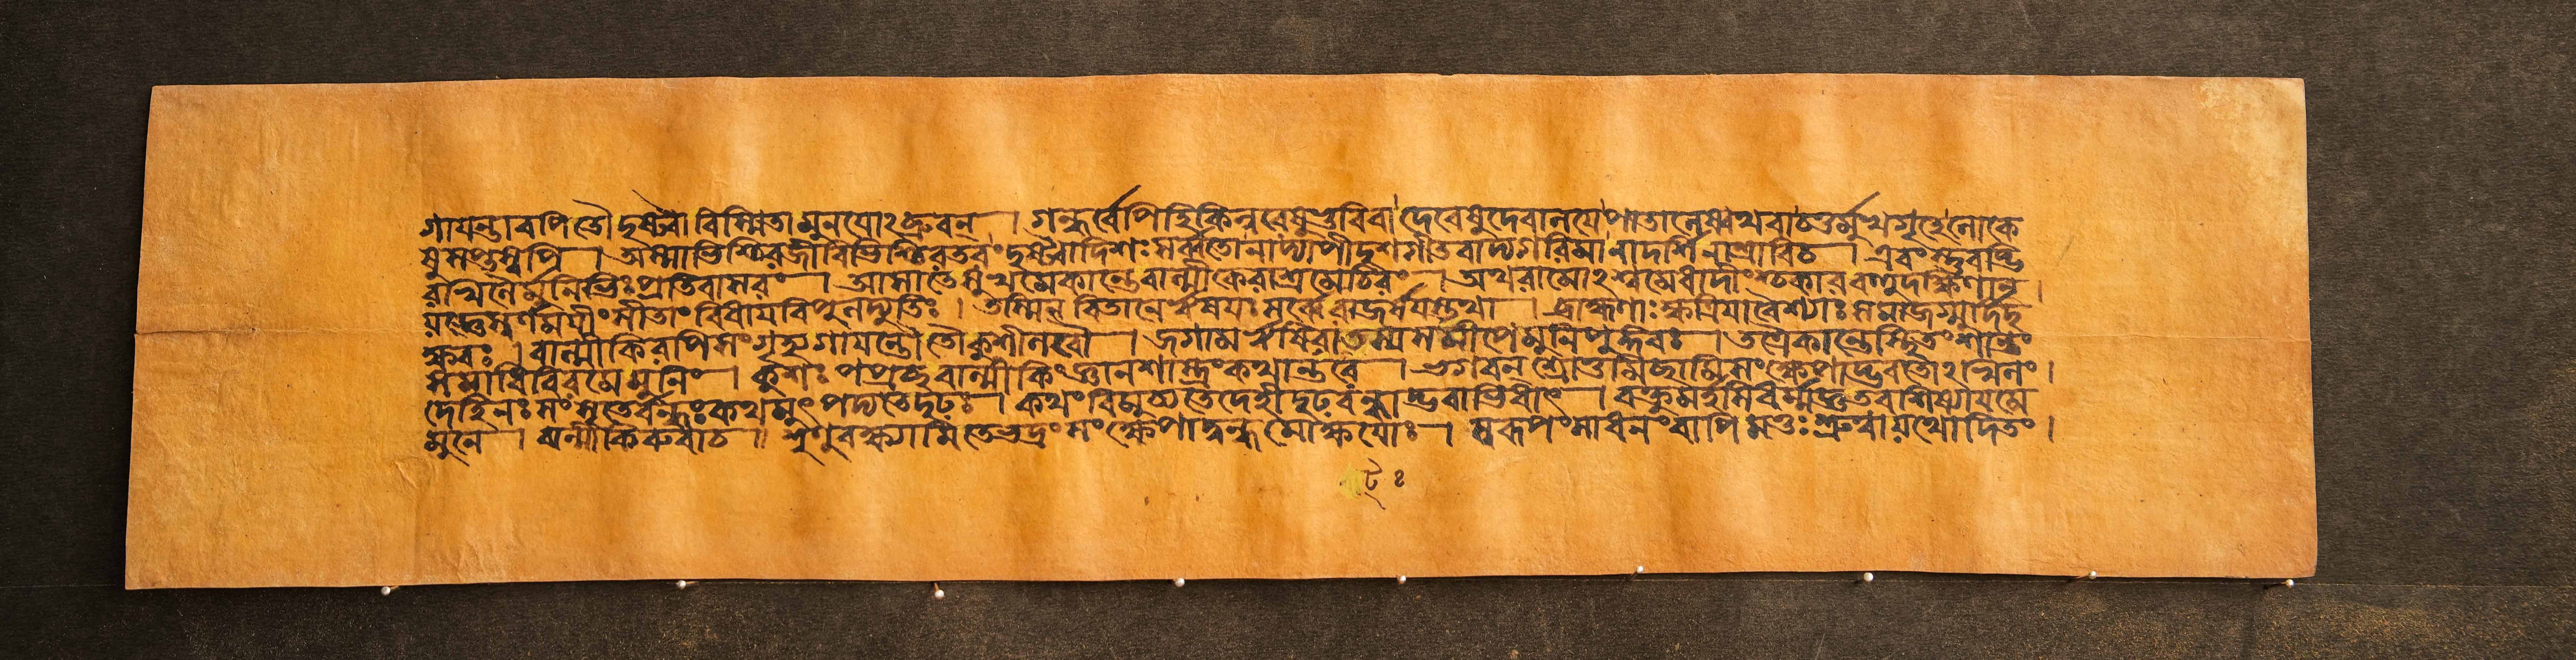 গায়ন্তাবপি তৌ দৃষ্ট্বা বিস্মিতা মুনয়োঽব্রুবন্ । গন্ধর্বেপি হি কিন্নরেষু ভুবি বা দেবেষু দেবালয়ে পাতালেষ্বথবা চতুর্মুখগৃহে লোকে
ষু সপ্তস্বপি । অস্মাভিশ্চিরজীবিভিশ্চিরতরং দৃষ্ট্বা দিশঃ সর্বতো নাদ্যাপীদৃশগীতবাদ্যগরিমা নাদর্শি নাশ্রাবি চ । এবং স্তুবদ্ভি
রখিলৈর্মুনিভিঃ প্রতিবাসরং । আসাতে সুখমেকান্তে বাল্মীকেরাশ্রমে চিরং । অথ রামোঽশ্বমেধাদীংশ্চকার বহুদক্ষিণান্ ।
যজ্ঞান্ স্বর্ণময়ীং সীতাং বিধায় বিপুলদ্যুতিঃ । তস্মিন্ বিতানে ঋষয়ঃ সর্বে রাজর্ষয়স্তথা । ব্রাহ্মণাঃ ক্ষত্রিয়া বৈশ্যাঃ সমাজগ্মুর্দিদৃ
ক্ষবঃ । বাল্মীকিরপি সংগৃহ্য গায়ন্তৌ তৌ কুশীলবৌ । জগাম ঋষিবাটস্য সমীপং মুনিপুঙ্গবঃ । তত্রৈকান্তে স্থিতং শান্তং
সমাধিবিরমে মুনিং । কুশঃ পপ্রচ্ছ বাল্মীকিং জ্ঞানশাস্ত্রং কথান্তরে । ভগবন্ শ্রোতুমিচ্ছামি সংক্ষেপাদ্ভবতোঽখিলং ।
দেহিনঃ সংসৃতের্বন্ধঃ কথমুৎপদ্যতে দৃঢঃ । কথং বিমুচ্যতে দেহী দৃঢবন্ধাদ্ভবাভিধাৎ । বক্তুমর্হসি সর্বজ্ঞ তব শিষ্যায় মে
মুনে । বাল্মীকিরুবাচ ॥ শৃণু বক্ষ্যামি তে ভদ্রং সংক্ষেপাদ্বন্ধমোক্ষয়োঃ । স্বরূপং সাধনং চাপি মত্তঃ শ্রুত্বা যথোদিতং ।